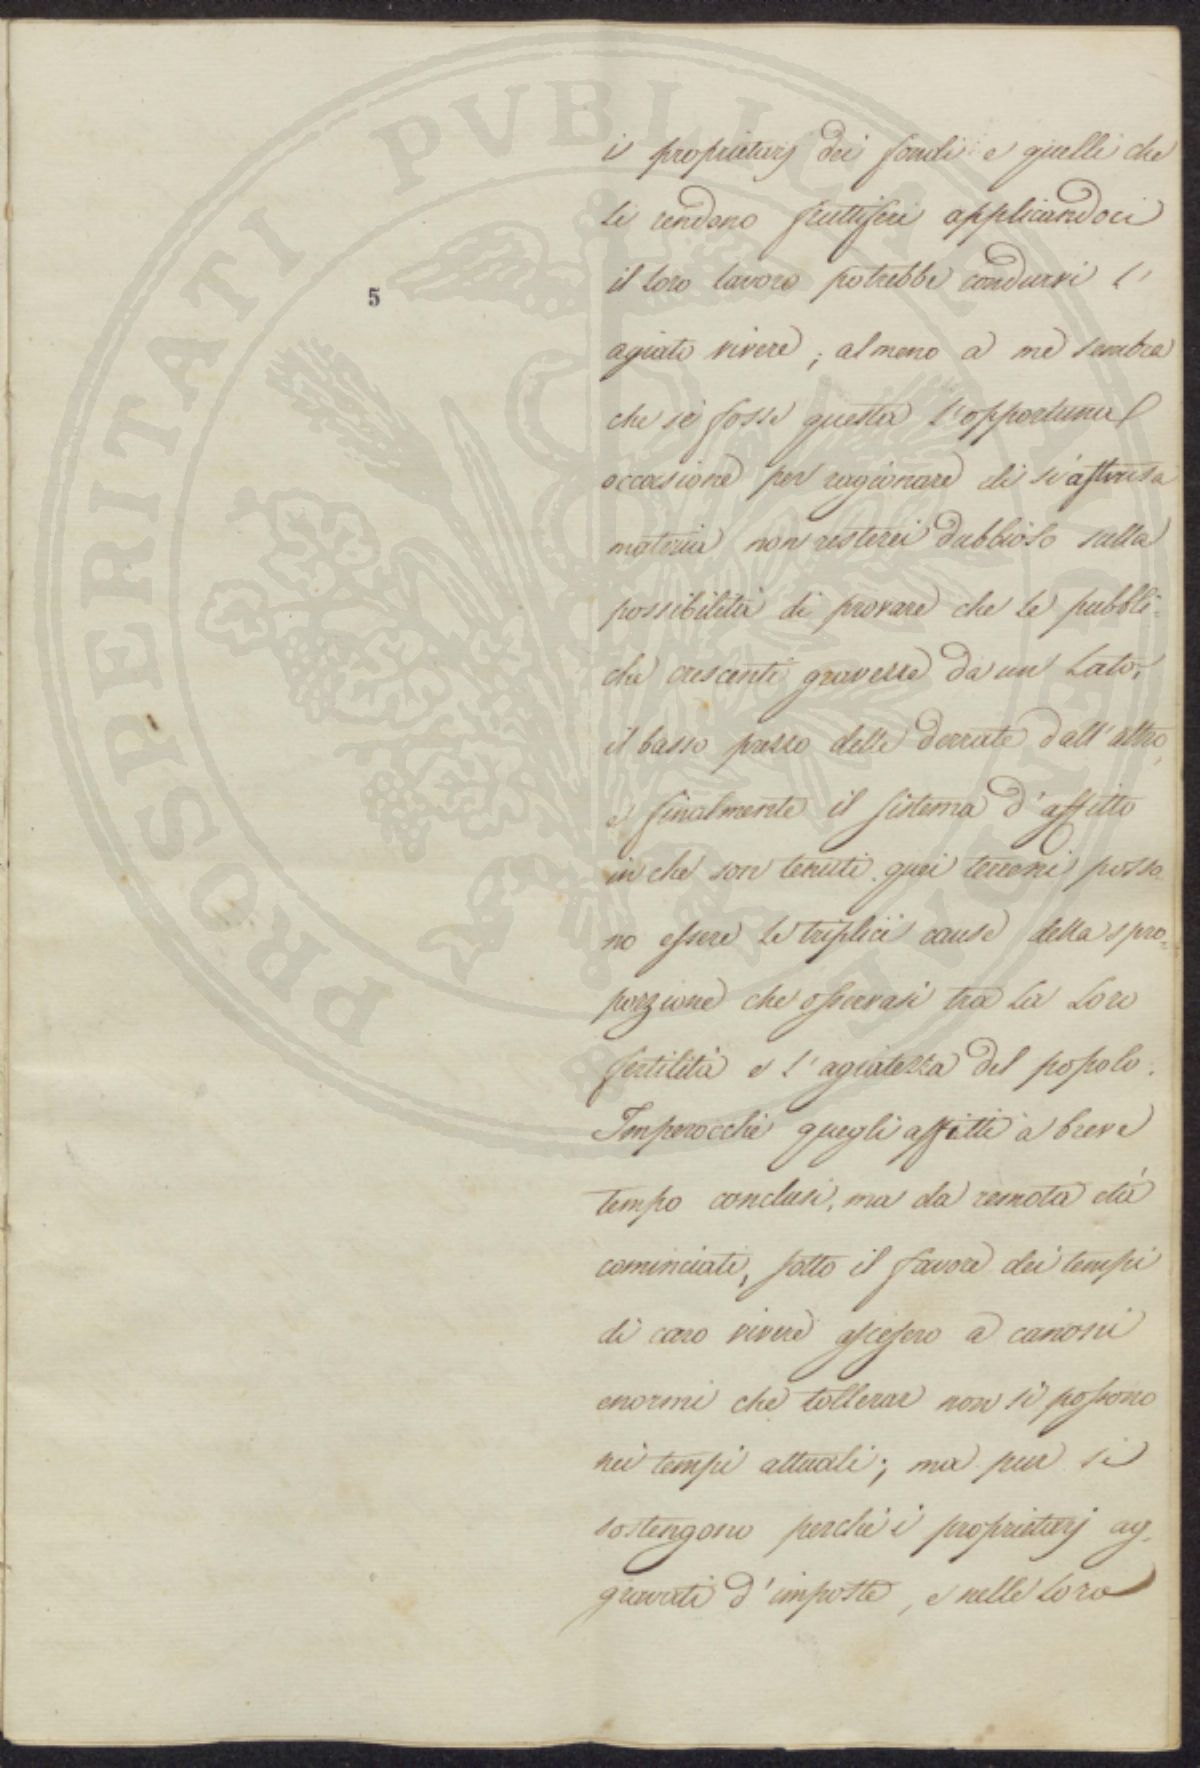 PROSPERITATI PUBLICAE AUGENDAE
5
i proprietarj dei fondi e quelli che
li rendono fruttiferi applicandoci
il loro lavoro potrebbe condurvi l'
agiato vivere; almeno a me sembra
che se fosse questa l'opportuna
occasione per ragionare di sì astrusa
materia non resterei dubbioso sulla
possibilità di provare che le pubbli-
che crescenti gravezze da un lato,
il basso prezzo delle derrate dall'altro,
e finalmente il sistema d'affitto
in che son tenuti quei terreni posso-
no essere le triplici cause della spro-
porzione che osservasi tra la loro
fertilità e l'agiatezza del popolo.
Imperocchè quegli affitti a breve
tempo conclusi, ma da remota età
cominciati, sotto il favore dei tempi
di caro vivere ascesero a canoni
enormi che tollerar non si possono
nei tempi attuali; ma pur si
sostengono perchè i proprietarj ag-
gravati d'imposte, e nelle loro